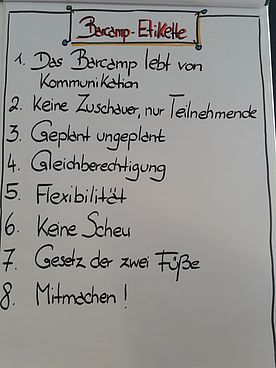 Barcamp-Etikette
1. Das Barcamp lebt von
Kommunikation
2. Keine Zuschauer, nur Teilnehmende
3. Geplant ungeplant
4. Gleichberechtigung
5. Flexibilität
6. Keine Scheu
7. Gesetz der zwei Füße
8. Mitmachen!